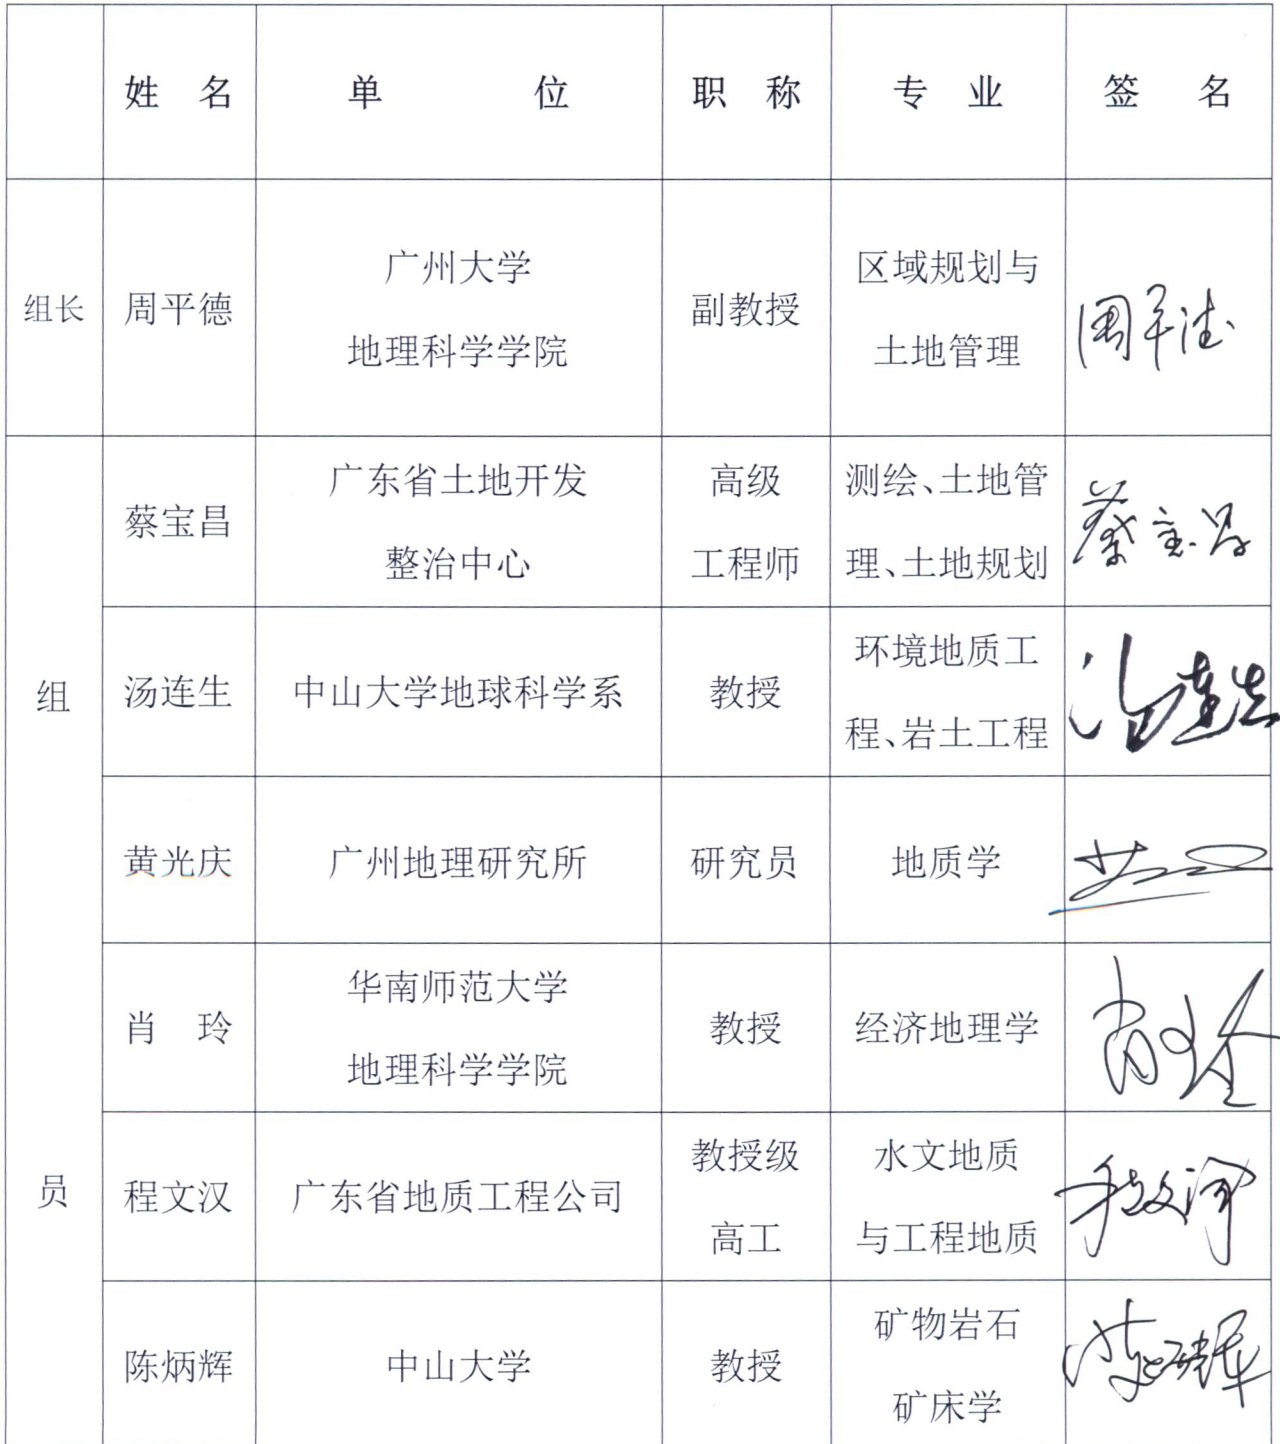 姓 名 单 位 职 称 专 业 签 名
组长 周平德 广州大学 地理科学学院 副教授 区域规划与 土地管理 周平德
组员
蔡宝昌 广东省土地开发 整治中心 高级 工程师 测绘、土地管 理、土地规划 蔡宝昌
汤连生 中山大学地球科学系 教授 环境地质工 程、岩土工程 汤连生
黄光庆 广州地理研究所 研究员 地质学
肖 玲 华南师范大学 地理科学学院 教授 经济地理学 肖玲
程文汉 广东省地质工程公司 教授级 高工 水文地质 与工程地质 程文汉
陈炳辉 中山大学 教授 矿物岩石 矿床学 陈炳辉